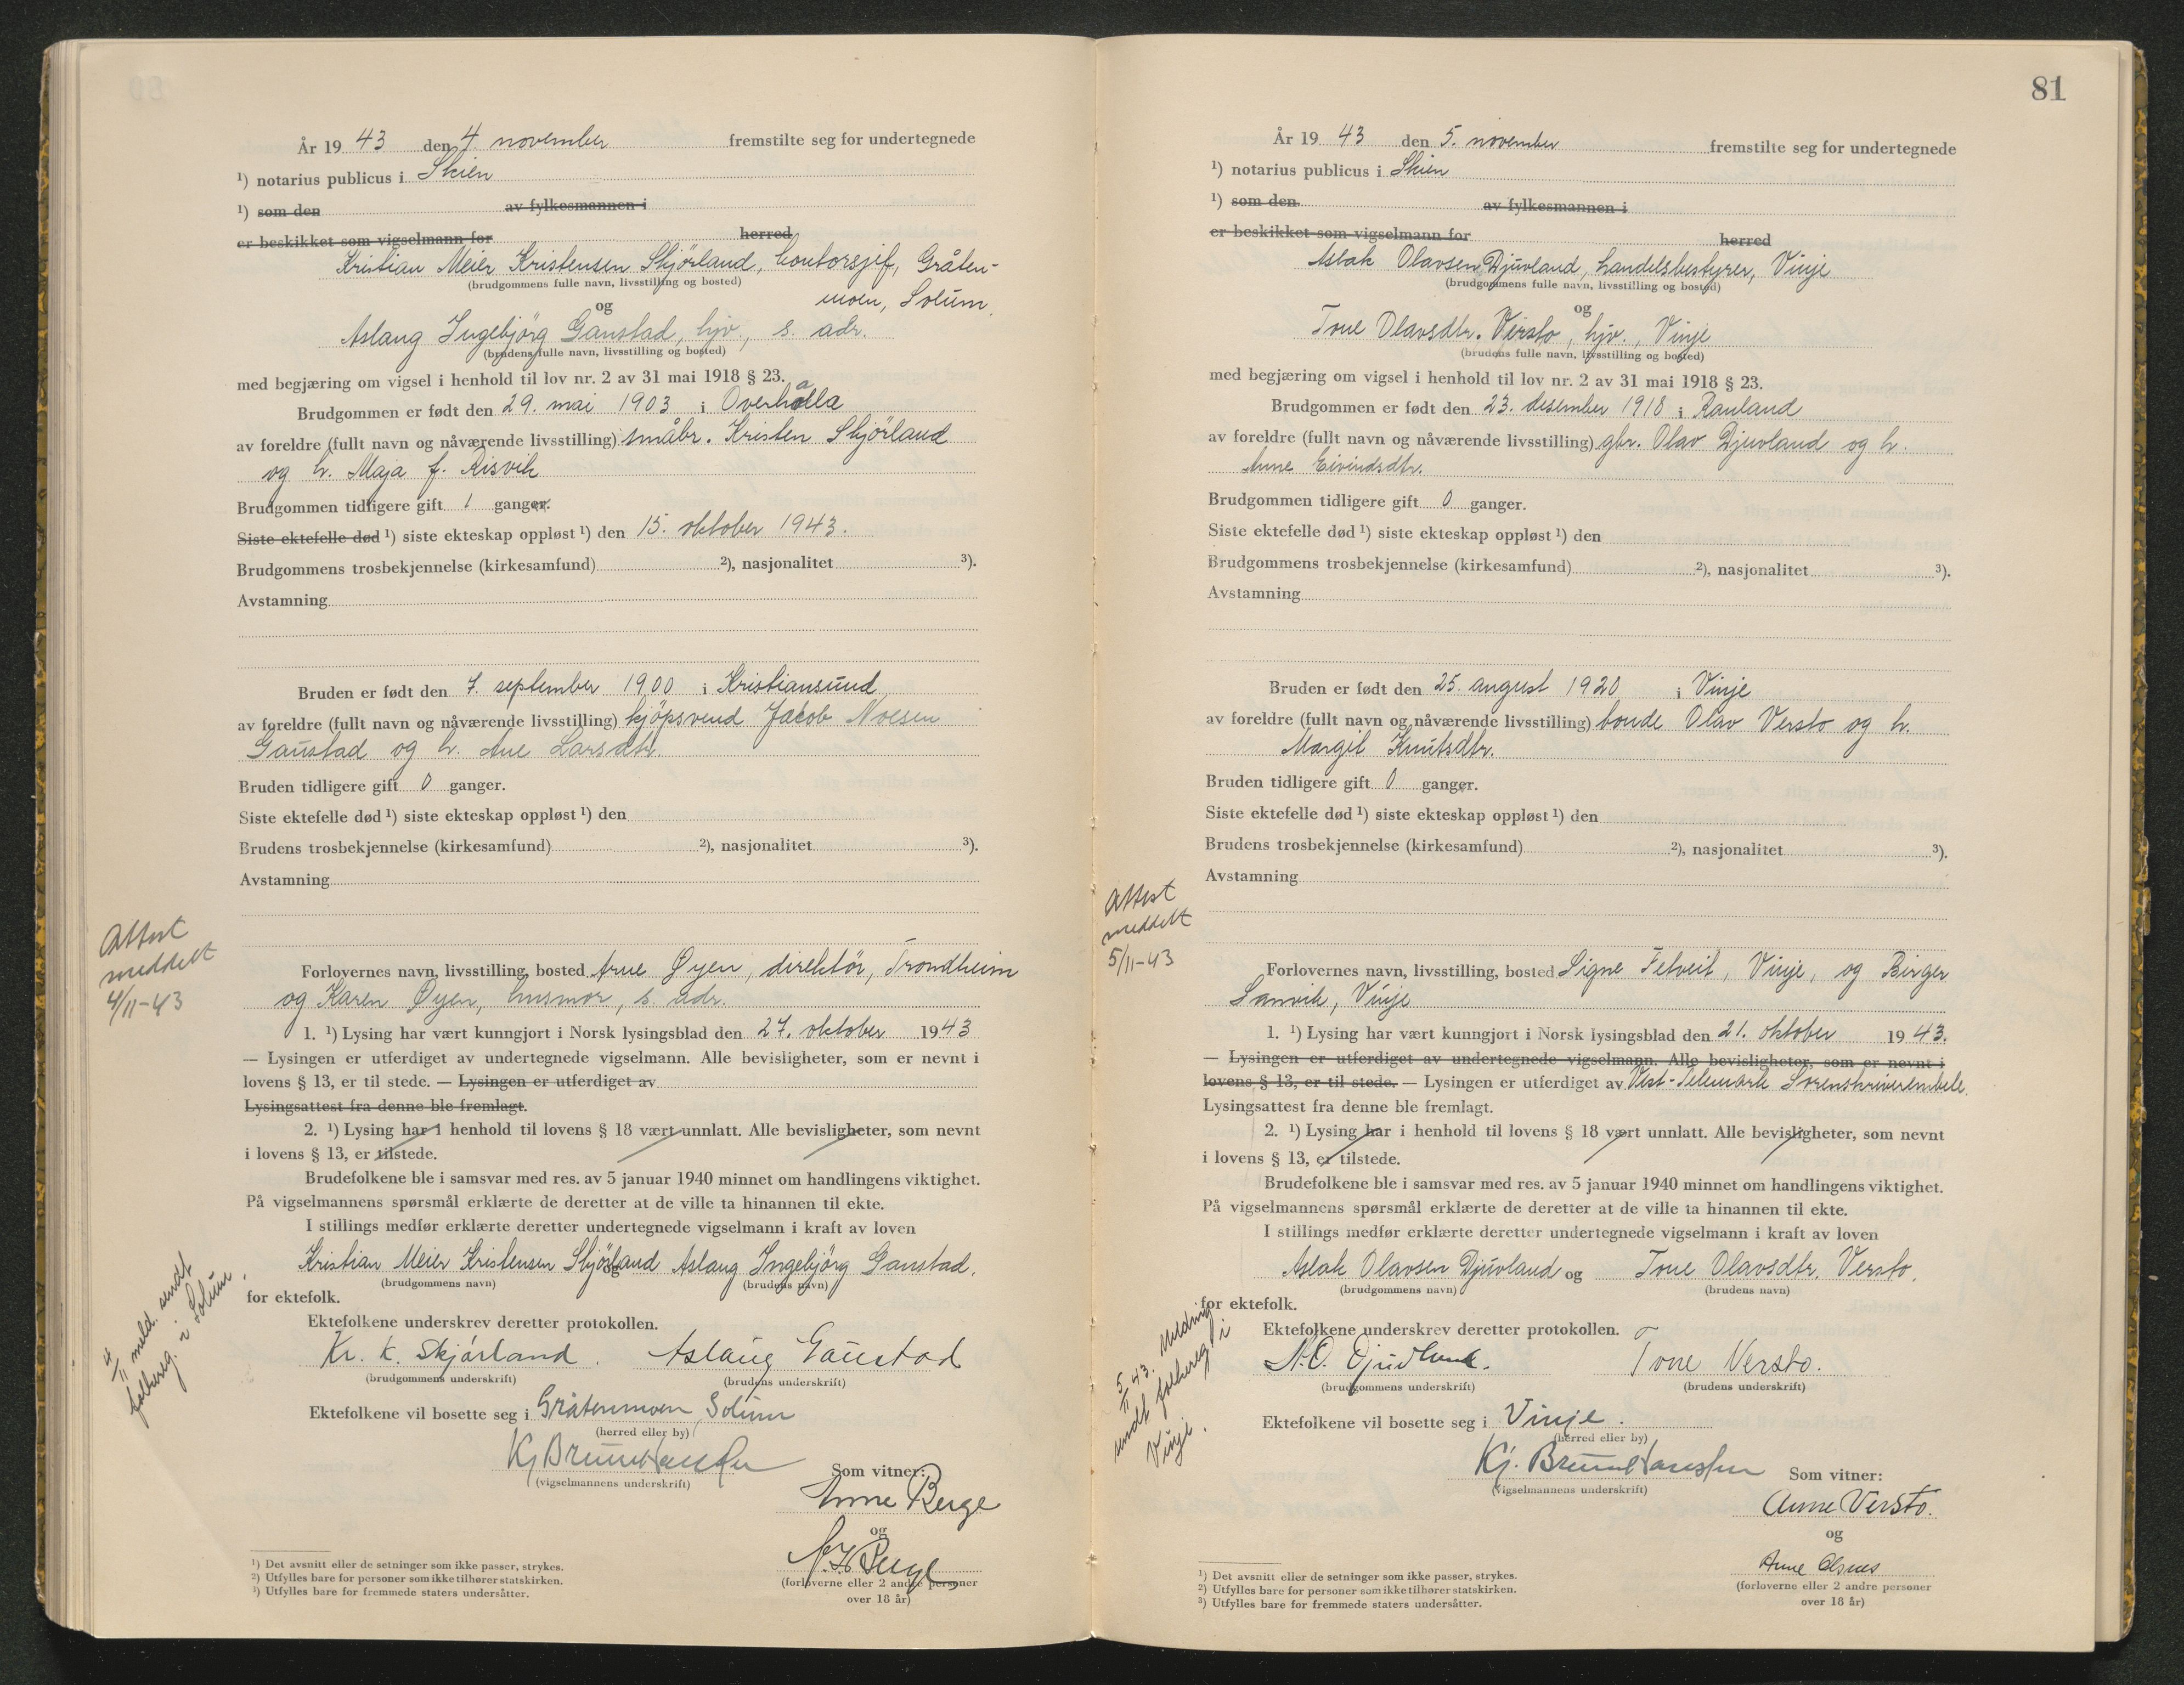 År 19 43 den 4. november fremstilte seg for undertegnede
¹) notarius publicus i Skien
¹) som den av fylkesmannen i
er beskikket som vigselmann for herred
Kristian Meier Kristensen Skjörland, kontorsjef, Gråten-
(brudgommens fulle navn, livsstilling og bosted)
moen, Solum.
og
Aslaug Ingebjörg Gaustad, hjv., s. adr.
(brudens fulle navn, livsstilling og bosted)
med begjæring om vigsel i henhold til lov nr. 2 av 31 mai 1918 § 23.
Brudgommen er født den 29. mai 1903 i Overhalla
av foreldre (fullt navn og nåværende livsstilling) småbr. Kristen Skjörland
og h. Maja f. Risvik
Brudgommen tidligere gift 1 ganger.
Siste ektefelle død ¹) siste ekteskap oppløst ¹) den 15. oktober 1943.
Brudgommens trosbekjennelse (kirkesamfund) ²), nasjonalitet ³).
Avstamning
Bruden er født den 7. september 1900 i Kristiansund,
av foreldre (fullt navn og nåværende livsstilling) kjöpsvend Jacob Noesen
Gaustad og h. Ane Larsdtr.
Bruden tidligere gift 0 ganger.
Siste ektefelle død ¹) siste ekteskap oppløst ¹) den
Brudens trosbekjennelse (kirkesamfund) ²), nasjonalitet ³).
Avstamning
Attest
meddelt
4/11-43
Forlovernes navn, livsstilling, bosted Arne Øyen, direktör, Trondheim
og Karen Øyen, husmor, s. adr.
1. ¹) Lysing har vært kunngjort i Norsk lysingsblad den 27. oktober 1943
— Lysingen er utferdiget av undertegnede vigselmann. Alle bevisligheter, som er nevnt i
lovens § 13, er til stede. — Lysingen er utferdiget av
Lysingsattest fra denne ble fremlagt.
2. ¹) Lysing har i henhold til lovens § 18 vært unnlatt. Alle bevisligheter, som nevnt
i lovens § 13, er tilstede.
Brudefolkene ble i samsvar med res. av 5 januar 1940 minnet om handlingens viktighet.
På vigselmannens spørsmål erklærte de deretter at de ville ta hinannen til ekte.
I stillings medfør erklærte deretter undertegnede vigselmann i kraft av loven
Kristian Meier Kristensen Skjörland og Aslaug Ingebjörg Gaustad.
(brudgommens navn) (brudens navn)
for ektefolk.
4/11 meld. sendt
folkereg. i Solum.
Ektefolkene underskrev deretter protokollen.
Kr. K. Skjörland. Aslaug Gaustad
(brudgommens underskrift) (brudens underskrift)
Ektefolkene vil bosette seg i Gråtenmoen, Solum
(herred eller by)
Kj Bruun Hanssen
(vigselmannens underskrift)
Som vitner:
Anne Berge
og
(forloverne eller 2 andre personer
over 18 år)
¹) Det avsnitt eller de setninger som ikke passer, strykes.
²) Utfylles bare for personer som ikke tilhører statskirken.
³) Utfylles bare for fremmede staters undersåtter.
81
År 19 43 den 5. november fremstilte seg for undertegnede
¹) notarius publicus i Skien
¹) som den av fylkesmannen i
er beskikket som vigselmann for herred
Aslak Olavsen Djuvland, handelsbestyrer, Vinje
(brudgommens fulle navn, livsstilling og bosted)
og
Tone Olavsdtr. Versto, hjv., Vinje
(brudens fulle navn, livsstilling og bosted)
med begjæring om vigsel i henhold til lov nr. 2 av 31 mai 1918 § 23.
Brudgommen er født den 23. desember 1918 i Rauland
av foreldre (fullt navn og nåværende livsstilling) gbr. Olav Djuvland og h.
Anne Eivindsdtr.
Brudgommen tidligere gift 0 ganger.
Siste ektefelle død ¹) siste ekteskap oppløst ¹) den
Brudgommens trosbekjennelse (kirkesamfund) ²), nasjonalitet ³).
Avstamning
Bruden er født den 25. august 1920 i Vinje
av foreldre (fullt navn og nåværende livsstilling) bonde Olav Versto og h.
Margit Knutsdtr.
Bruden tidligere gift 0 ganger.
Siste ektefelle død ¹) siste ekteskap oppløst ¹) den
Brudens trosbekjennelse (kirkesamfund) ²), nasjonalitet ³).
Avstamning
Attest
meddelt
5/11-43
Forlovernes navn, livsstilling, bosted Signe Felveit, Vinje, og Birger
Sanvik, Vinje
1. ¹) Lysing har vært kunngjort i Norsk lysingsblad den 21. oktober 1943.
— Lysingen er utferdiget av undertegnede vigselmann. Alle bevisligheter, som er nevnt i
lovens § 13, er til stede. — Lysingen er utferdiget av Vest-Telemark Sorenskriverembete.
Lysingsattest fra denne ble fremlagt.
2. ¹) Lysing har i henhold til lovens § 18 vært unnlatt. Alle bevisligheter, som nevnt
i lovens § 13, er tilstede.
Brudefolkene ble i samsvar med res. av 5 januar 1940 minnet om handlingens viktighet.
På vigselmannens spørsmål erklærte de deretter at de ville ta hinannen til ekte.
I stillings medfør erklærte deretter undertegnede vigselmann i kraft av loven
Aslak Olavsen Djuvland og Tone Olavsdtr. Versto.
(brudgommens navn) (brudens navn)
for ektefolk.
5/11 43. Melding
sendt folkereg. i
Vinje.
Ektefolkene underskrev deretter protokollen.
A.O. Djuvland. Tone Versto.
(brudgommens underskrift) (brudens underskrift)
Ektefolkene vil bosette seg i Vinje.
(herred eller by)
Kj. Bruun Hanssen
(vigselmannens underskrift)
Som vitner:
Anne Versto.
og
Anne Olsnes
(forloverne eller 2 andre personer
over 18 år)
¹) Det avsnitt eller de setninger som ikke passer, strykes.
²) Utfylles bare for personer som ikke tilhører statskirken.
³) Utfylles bare for fremmede staters undersåtter.